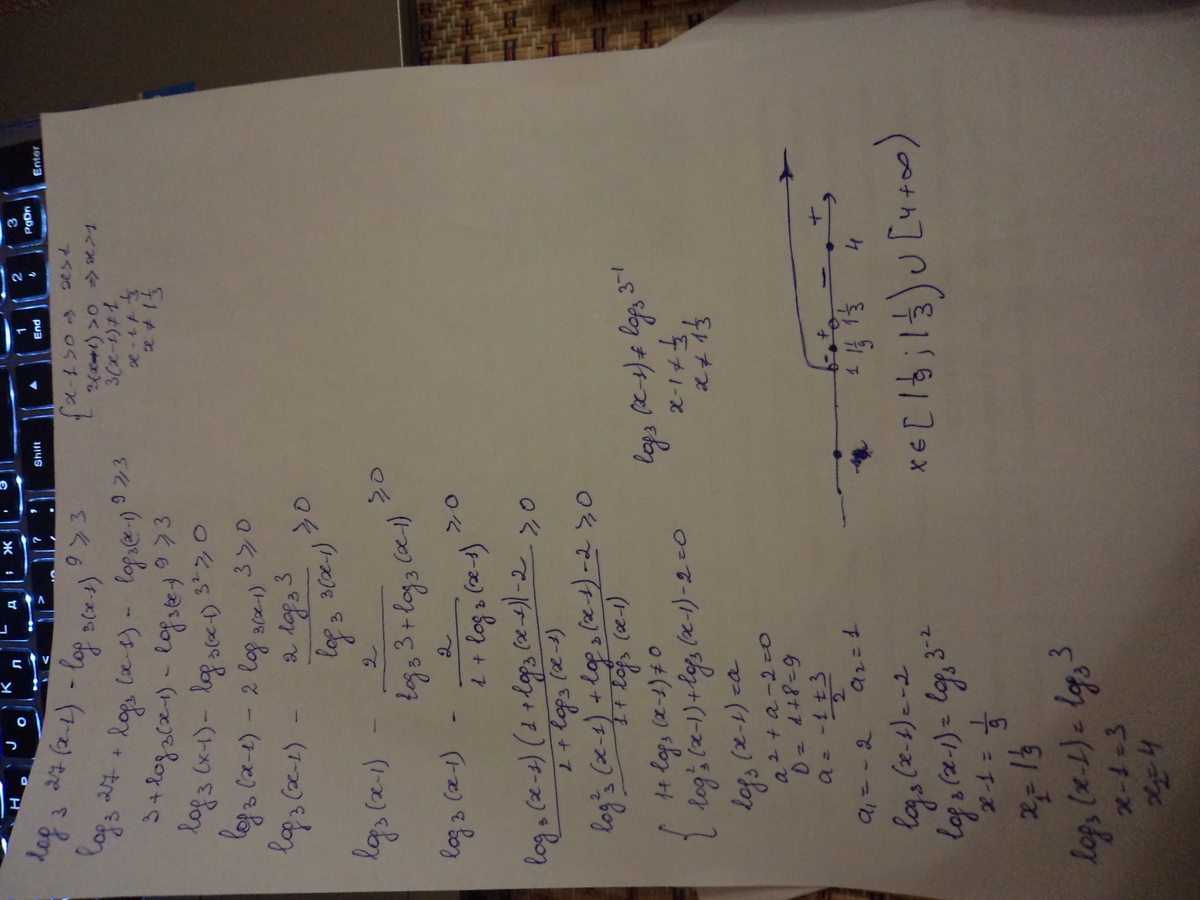 log₃ 27(x-1) - log₃₍ₓ₋₁₎ 9 ≥ 3
log₃ 27 + log₃(x-1) - log₃₍ₓ₋₁₎ 9 ≥ 3
3 + log₃(x-1) - log₃₍ₓ₋₁₎ 9 ≥ 3
log₃(x-1) - log₃₍ₓ₋₁₎ 3² ≥ 0
log₃(x-1) - 2 log₃₍ₓ₋₁₎ 3 ≥ 0
log₃(x-1) - (2 log₃ 3)/(log₃ 3(x-1)) ≥ 0
log₃(x-1) - 2/(log₃ 3 + log₃(x-1)) ≥ 0
log₃(x-1) - 2/(1 + log₃(x-1)) ≥ 0
(log₃(x-1)(1 + log₃(x-1)) - 2)/(1 + log₃(x-1)) ≥ 0
(log₃²(x-1) + log₃(x-1) - 2)/(1 + log₃(x-1)) ≥ 0
{ 1 + log₃(x-1) ≠ 0
log₃²(x-1) + log₃(x-1) - 2 = 0
log₃(x-1) = a
a² + a - 2 = 0
D = 1 + 8 = 9
a = (-1 ± 3)/2
a₁ = -2 a₂ = 1
log₃(x-1) = -2
log₃(x-1) = log₃ 3⁻²
x-1 = 1/9
x₁ = 1 1/9
log₃(x-1) = log₃ 3
x-1 = 3
x₂ = 4
{ x-1 > 0 ⇒ x > 1
3(x-1) > 0 ⇒ x > 1
3(x-1) ≠ 1
x-1 ≠ 1/3
x ≠ 1 1/3
log₃(x-1) ≠ log₃ 3⁻¹
x-1 ≠ 1/3
x ≠ 1 1/3
- + - +
1 1 1/9 1 1/3 4
x ∈ [1 1/9; 1 1/3) ∪ [4 +∞)
Enter
3 PgDn
2
1 End
Shift
Э
Ж ;
Д L
Л K
О J
Р H